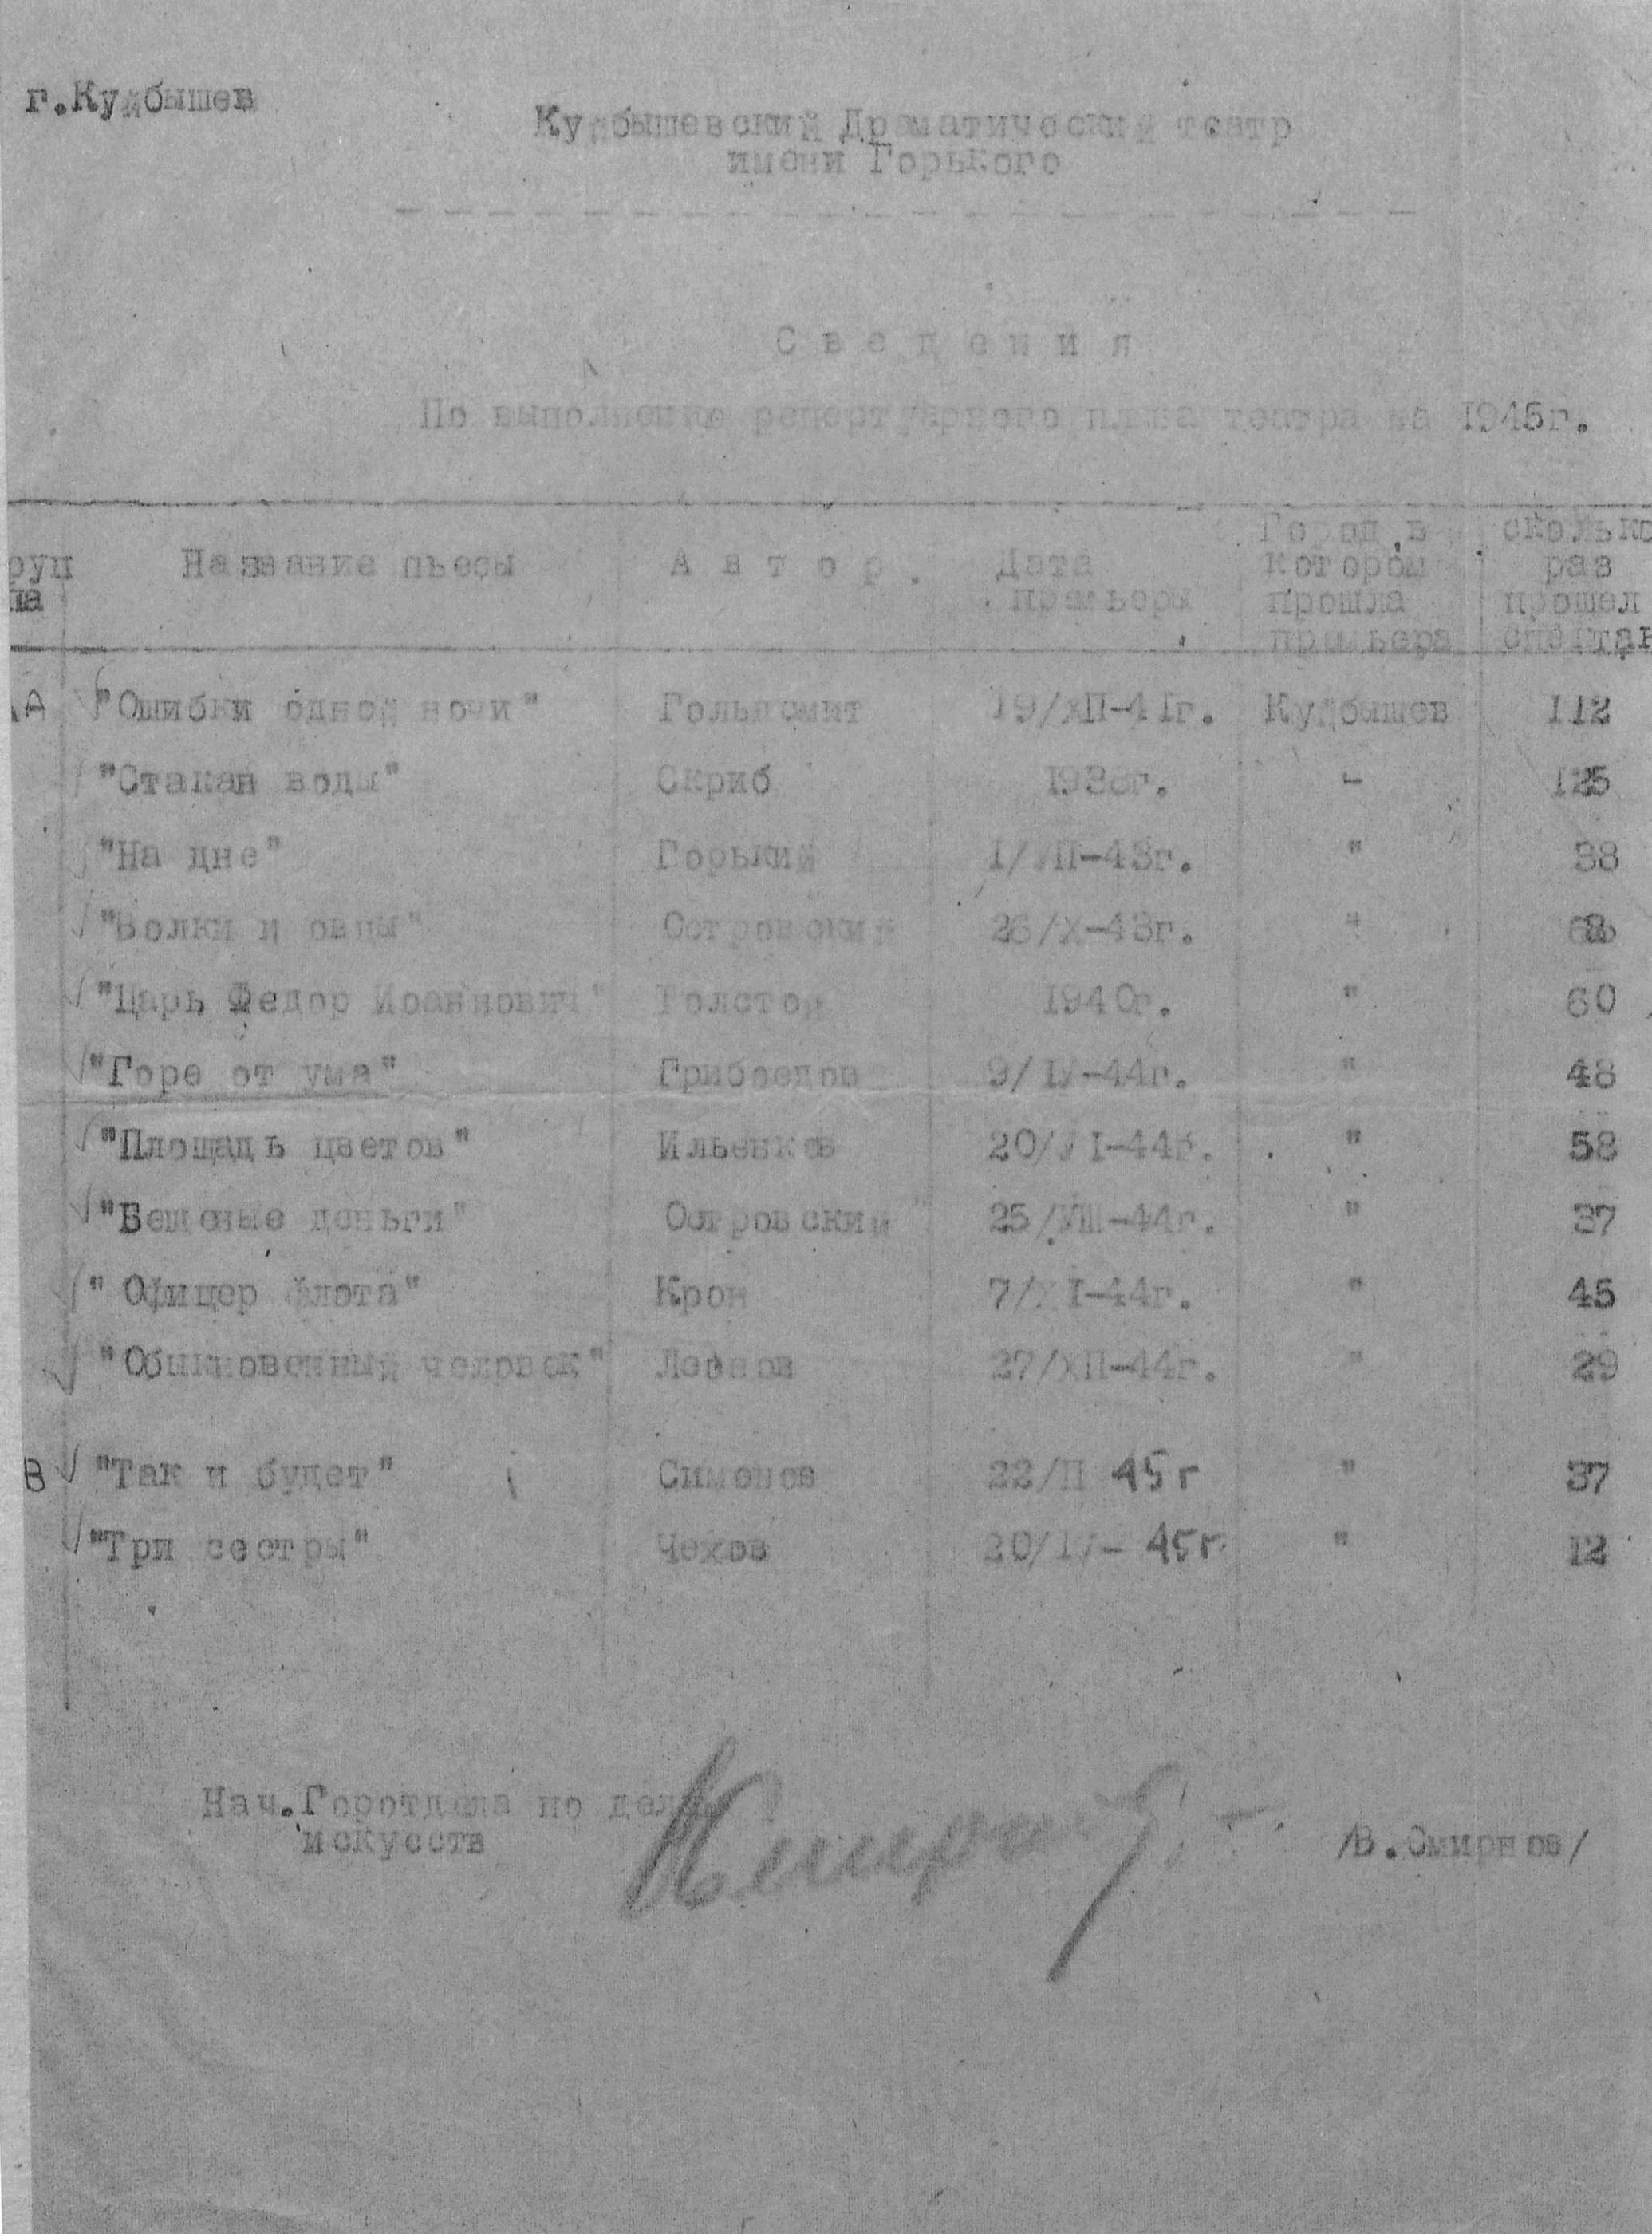 г.Куйбышев
Куйбышевский Драматический театр
имени Горького
Сведения
По выполнению репертуарного плана театра на 1945г.
руп
па
Название пьесы
Автор.
Дата
премьеры
Город,в
котором
прошла
премьера
сколько
раз
прошел
спектак
А "Ошибки одной ночи" Гольдсмит 19/XII-41г. Куйбышев 112
"Стакан воды" Скриб - 125
"На дне" Горький 1/VII-43г. " 38
"Волки и овцы" Островский 26/X-43г. "
"Царь Федор Иоаннович" Толстой 1940г. " 60
"Горе от ума" Грибоедов 9/IV-44г. " 48
"Площадь цветов" Ильенков 20/VI-44г. " 58
"Бешеные деньги" Островский 25/VIII-44г. " 37
"Офицер флота" Крон 7/XI-44г. " 45
"Обыкновенный человек" Леонов 27/XII-44г. " 29
В "Так и будет" Симонов 22/II 45г " 37
"Три сестры" Чехов 45г " 12
Нач.Горотдела по делам
искусств
/В.Смирнов/